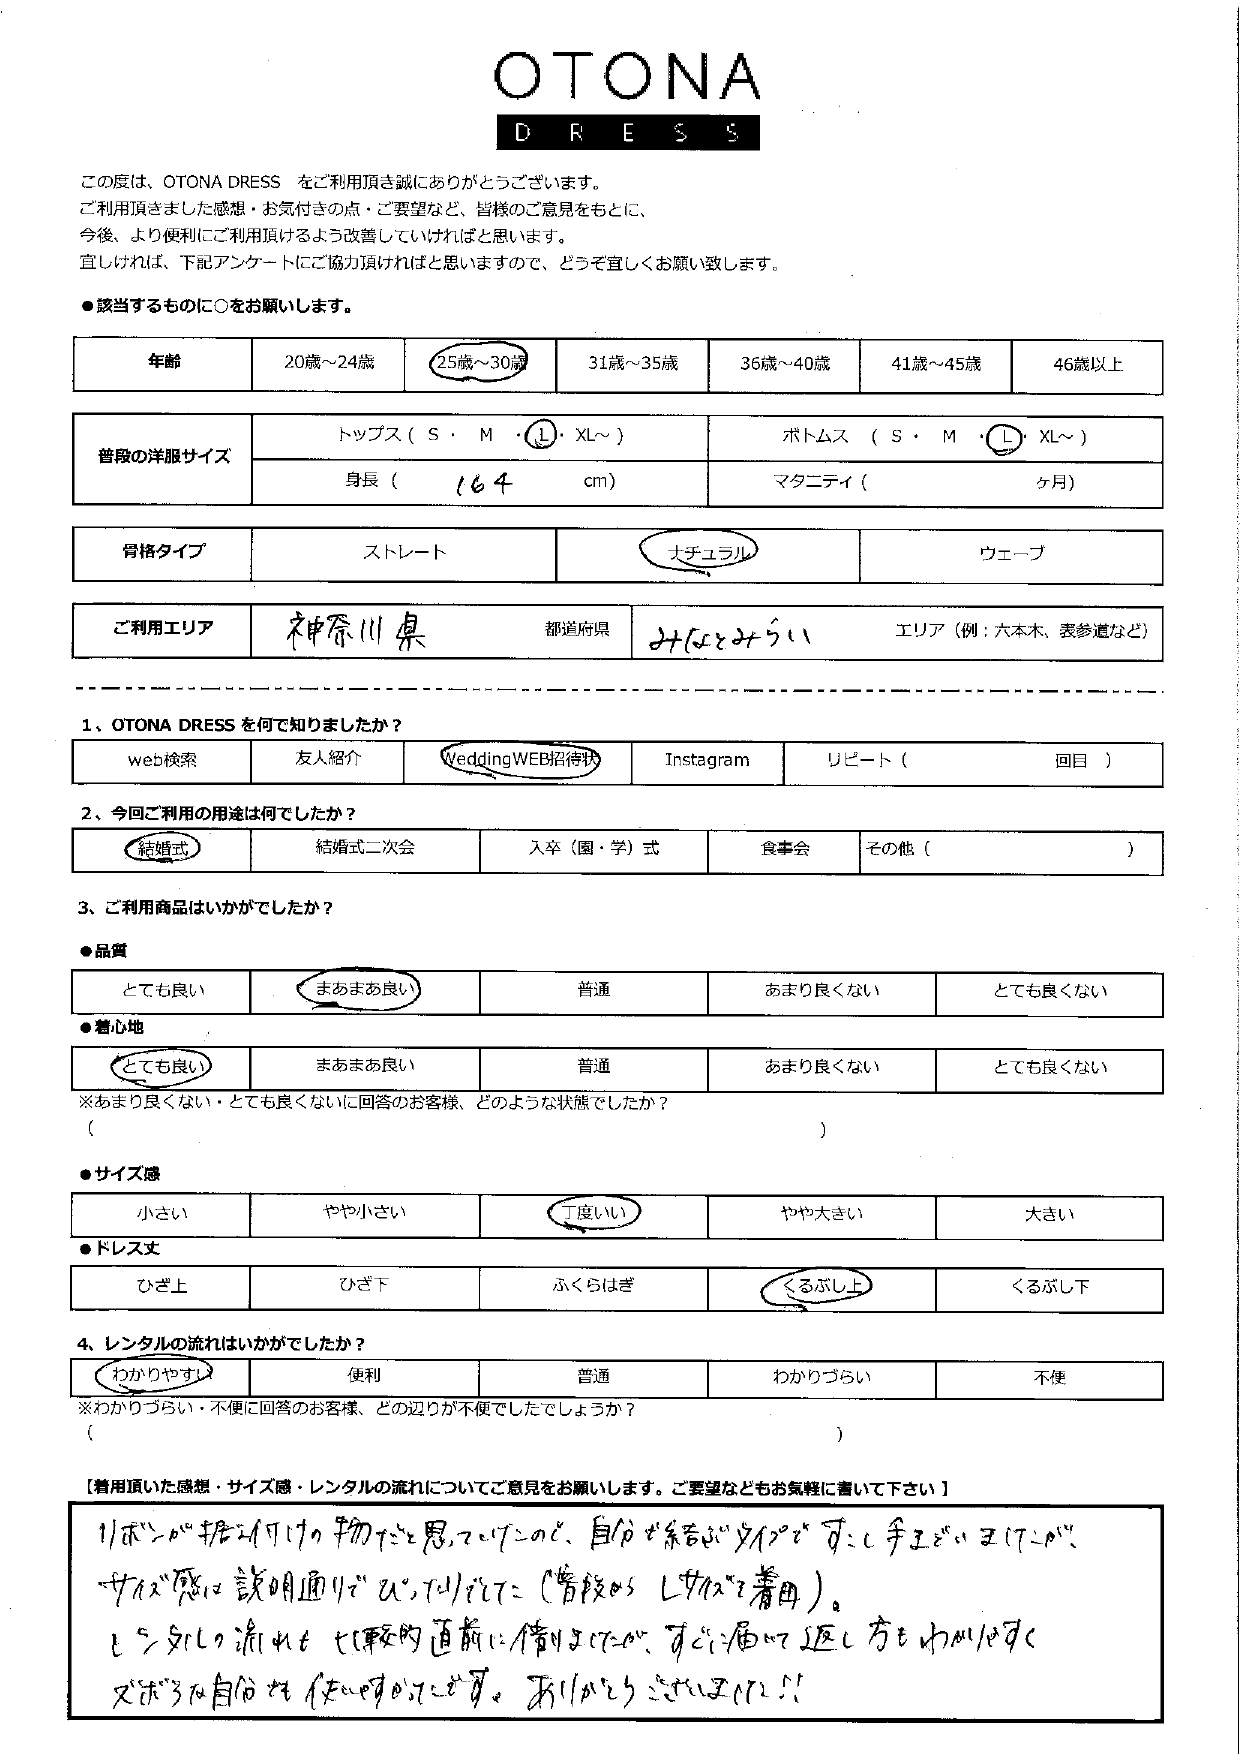 OTONA
DRESS
この度は、OTONA DRESS をご利用頂き誠にありがとうございます。
ご利用頂きました感想・お気付きの点・ご要望など、皆様のご意見をもとに、
今後、より便利にご利用頂けるよう改善していければと思います。
宜しければ、下記アンケートにご協力頂ければと思いますので、どうぞ宜しくお願い致します。
●該当するものに○をお願いします。
年齢 20歳～24歳 25歳～30歳 31歳～35歳 36歳～40歳 41歳～45歳 46歳以上
普段の洋服サイズ トップス ( S ・ M ・ L ・ XL～ ) ボトムス ( S ・ M ・ L ・ XL～ )
身長 ( 164 cm) マタニティ ( ヶ月)
骨格タイプ ストレート ナチュラル ウェーブ
ご利用エリア 神奈川県 都道府県 みなとみらい エリア（例：六本木、表参道など）
1、OTONA DRESS を何で知りましたか？
web検索 友人紹介 WeddingWEB招待状 Instagram リピート ( 回目 )
2、今回ご利用の用途は何でしたか？
結婚式 結婚式二次会 入卒（園・学）式 食事会 その他 ( )
3、ご利用商品はいかがでしたか？
●品質
とても良い まあまあ良い 普通 あまり良くない とても良くない
●着心地
とても良い まあまあ良い 普通 あまり良くない とても良くない
※あまり良くない・とても良くないに回答のお客様、どのような状態でしたか？
( )
●サイズ感
小さい やや小さい 丁度いい やや大きい 大きい
●ドレス丈
ひざ上 ひざ下 ふくらはぎ くるぶし上 くるぶし下
4、レンタルの流れはいかがでしたか？
わかりやすい 便利 普通 わかりづらい 不便
※わかりづらい・不便に回答のお客様、どの辺りが不便でしたでしょうか？
( )
【着用頂いた感想・サイズ感・レンタルの流れについてご意見をお願いします。ご要望などもお気軽に書いて下さい 】
リボンが据え付けの物だと思っていたので、自分で結ぶタイプですこし手まどいましたが、
サイズ感は説明通りでぴったりでした（普段からLサイズを着用）。
レンタルの流れも比較的直前に借りましたが、すぐに届いて返し方もわかりやすく
ズボラな自分でも使いやすかったです。ありがとうございました!!